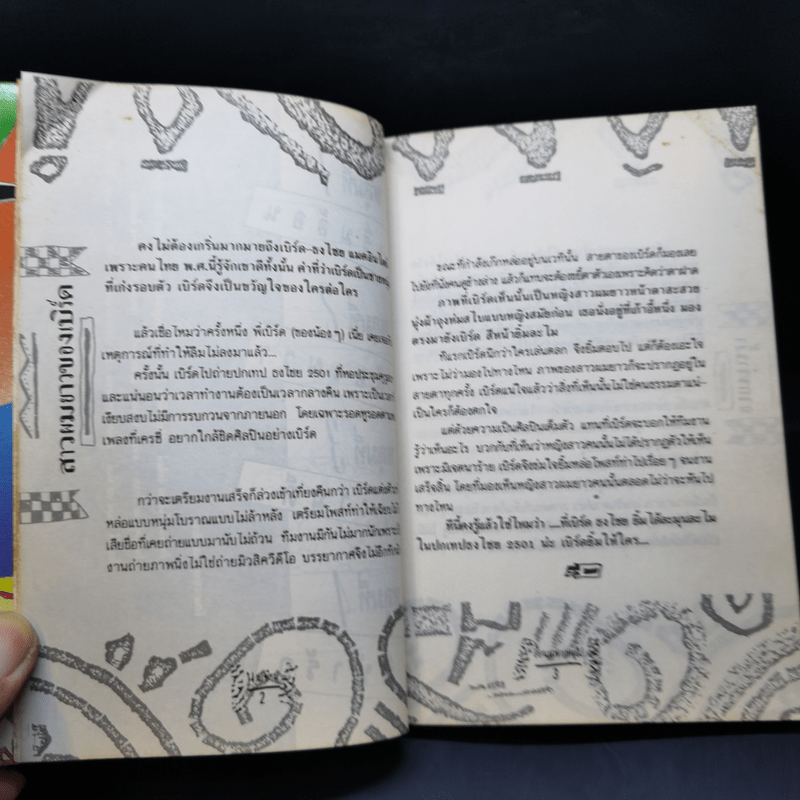 สาวผมยาวของเบิร์ด
คงไม่ต้องเกริ่นมากมายถึงเบิร์ด-ธงไชย แมคอินไต
เพราะคนไทย พ.ศ.นี้รู้จักเขาดีทั้งนั้น คำที่ว่าเบิร์ดเป็นชาย
ที่เก่งรอบตัว เบิร์ดจึงเป็นขวัญใจของใครต่อใคร
แล้วเชื่อไหมว่าครั้งหนึ่ง พี่เบิร์ด (ของน้องๆ) เนี่ย เคยเจอ
เหตุการณ์ที่ทำให้ลืมไม่ลงมาแล้ว...
ครั้งนั้น เบิร์ดไปถ่ายปกเทป ธงไชย 2501 ที่หอประชุมคุรุสภา
และแน่นอนว่าเวลาทำงานต้องเป็นเวลากลางคืน เพราะเป็นเวลา
เงียบสงบไม่มีการรบกวนจากภายนอก โดยเฉพาะรอดหูรอดตา
เพลงที่เครซี่ อยากใกล้ชิดศิลปินอย่างเบิร์ด
กว่าจะเตรียมงานเสร็จก็ล่วงเข้าเที่ยงคืนกว่า เบิร์ดแต่งตัว
หล่อแบบหนุ่มโบราณแบบไม่ล้าหลัง เตรียมโพสท์ทำให้เจียนไม่
เสียชื่อที่เคยถ่ายแบบมานับไม่ถ้วน ทีมงานมีกันไม่มากนักเพราะ
งานถ่ายภาพนิ่งไม่ใช่ถ่ายมิวสิควีดีโอ บรรยากาศจึงไม่อึกทึก
2
ขณะที่กำลังเก๊กหล่ออยู่บนเวทีนั้น สายตาของเบิร์ดก็มองเลย
ไปยังที่นั่งคนดูข้างล่าง แล้วก็แทบจะต้องขยี้ตาตัวเองเพราะคิดว่าตาฝาด
ภาพที่เบิร์ดเห็นนั้นเป็นหญิงสาวผมยาวหน้าตาสะสวย
นุ่งผ้าถุงห่มสไบแบบหญิงสมัยก่อน เธอนั่งอยู่ที่เก้าอี้หนึ่ง มอง
ตรงมายังเบิร์ด สีหน้ายิ้มละไม
ทีแรกเบิร์ดนึกว่าใครเล่นตลก จึงยิ้มตอบไป แต่ก็ต้องเอะใจ
เพราะไม่ว่ามองไปทางไหน ภาพของสาวผมยาวก็จะปรากฏอยู่ใน
สายตาทุกครั้ง เบิร์ดแน่ใจแล้วว่าสิ่งที่เห็นนั้นไม่ใช่คนธรรมดาแน่-
เป็นใครก็ต้องตกใจ
แต่ด้วยความเป็นศิลปินเต็มตัว แทนที่เบิร์ดจะบอกให้ทีมงาน
รู้ว่าเห็นอะไร บวกกับที่เห็นว่าหญิงสาวคนนั้นไม่ได้ปรากฏตัวให้เห็น
เพราะมีเจตนาร้าย เบิร์ดจึงข่มใจยิ้มหล่อโพสท์ท่าไปเรื่อยๆ จนงาน
เสร็จสิ้น โดยที่มองเห็นหญิงสาวผมยาวคนนั้นตลอดไม่ว่าจะหันไป
ทางไหน
ทีนี้คงรู้แล้วใช่ไหมว่า ....พี่เบิร์ด ธงไชย ยิ้มได้ละมุนละไม
ในปกเทปธงไชย 2501 น่ะ เบิร์ดยิ้มให้ใคร...
3